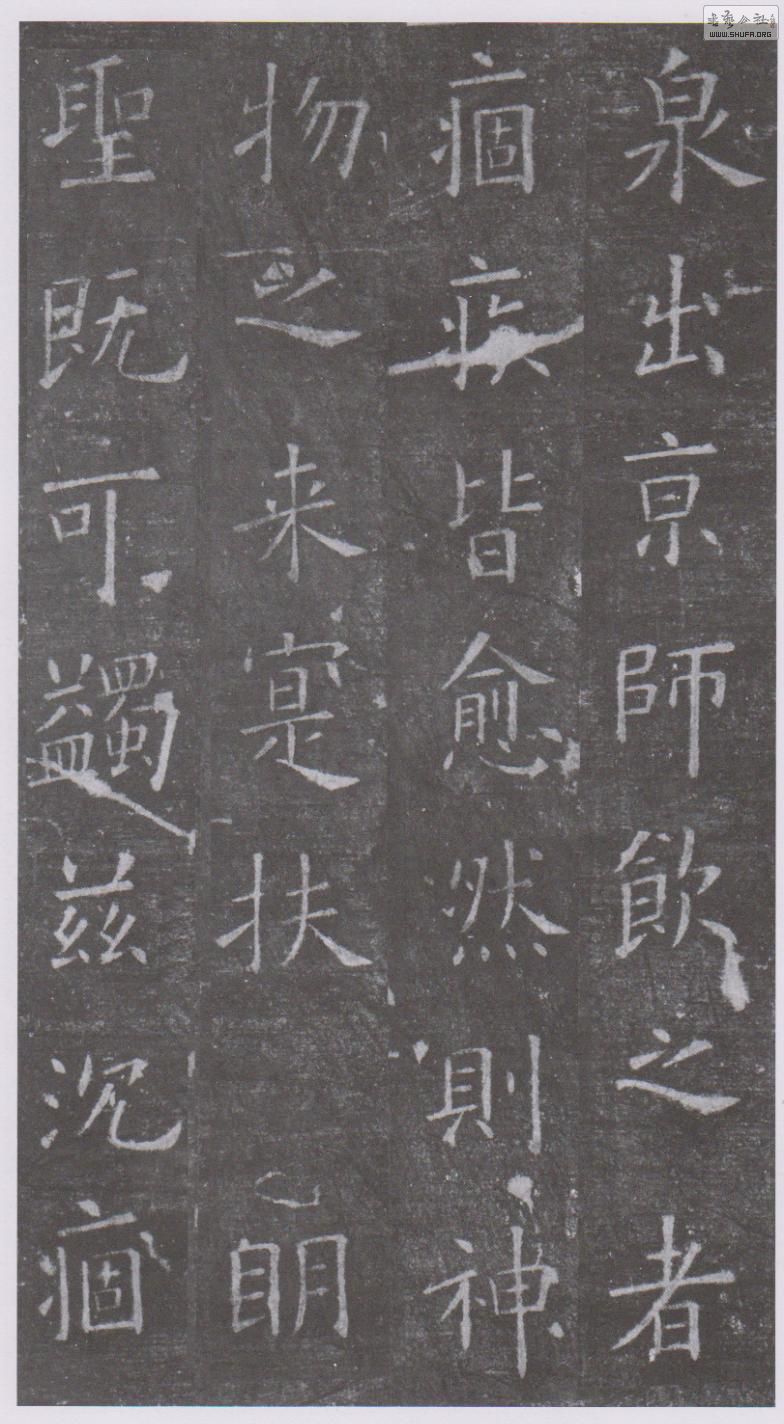 泉出京師飲之者
痼疾皆愈然則神
物之来寔扶明
聖既可蠲兹沉痼
WWW.SHUFA.ORG